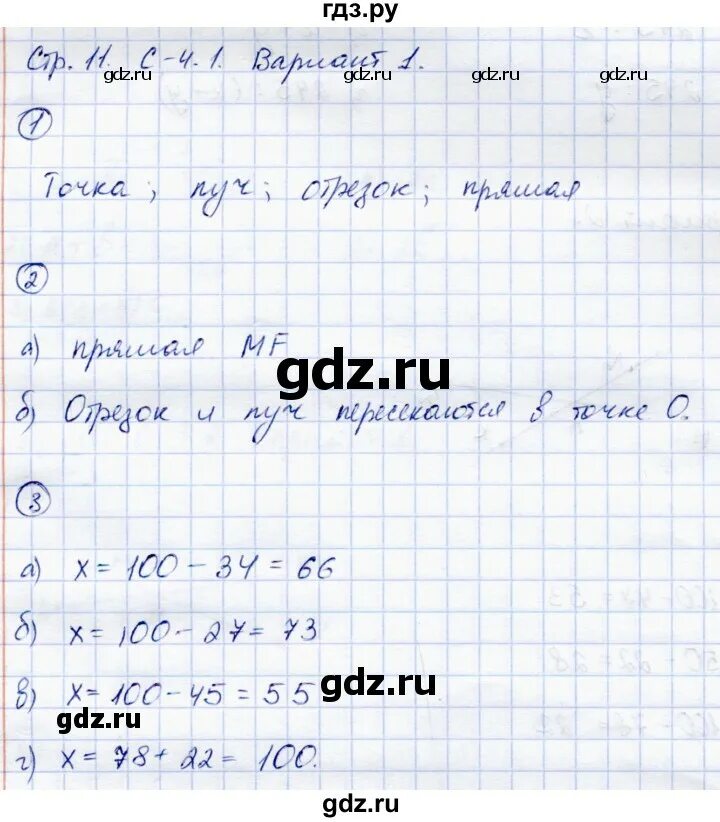 гдз.ру
Стр. 11. С-4.1. Вариант 1.
gdz.ru gdz.ru gdz.ru gdz.ru
1
Точка; луч; отрезок; прямая
2
а) прямая MF
gdz.ru
б) Отрезок и луч пересекаются в точке О.
3
а) x = 100 - 34 = 66
б) x = 100 - 27 = 73
в) x = 100 - 45 = 55
gdz.ru
gdz.ru
г) x = 78 + 22 = 100.
gdz.ru